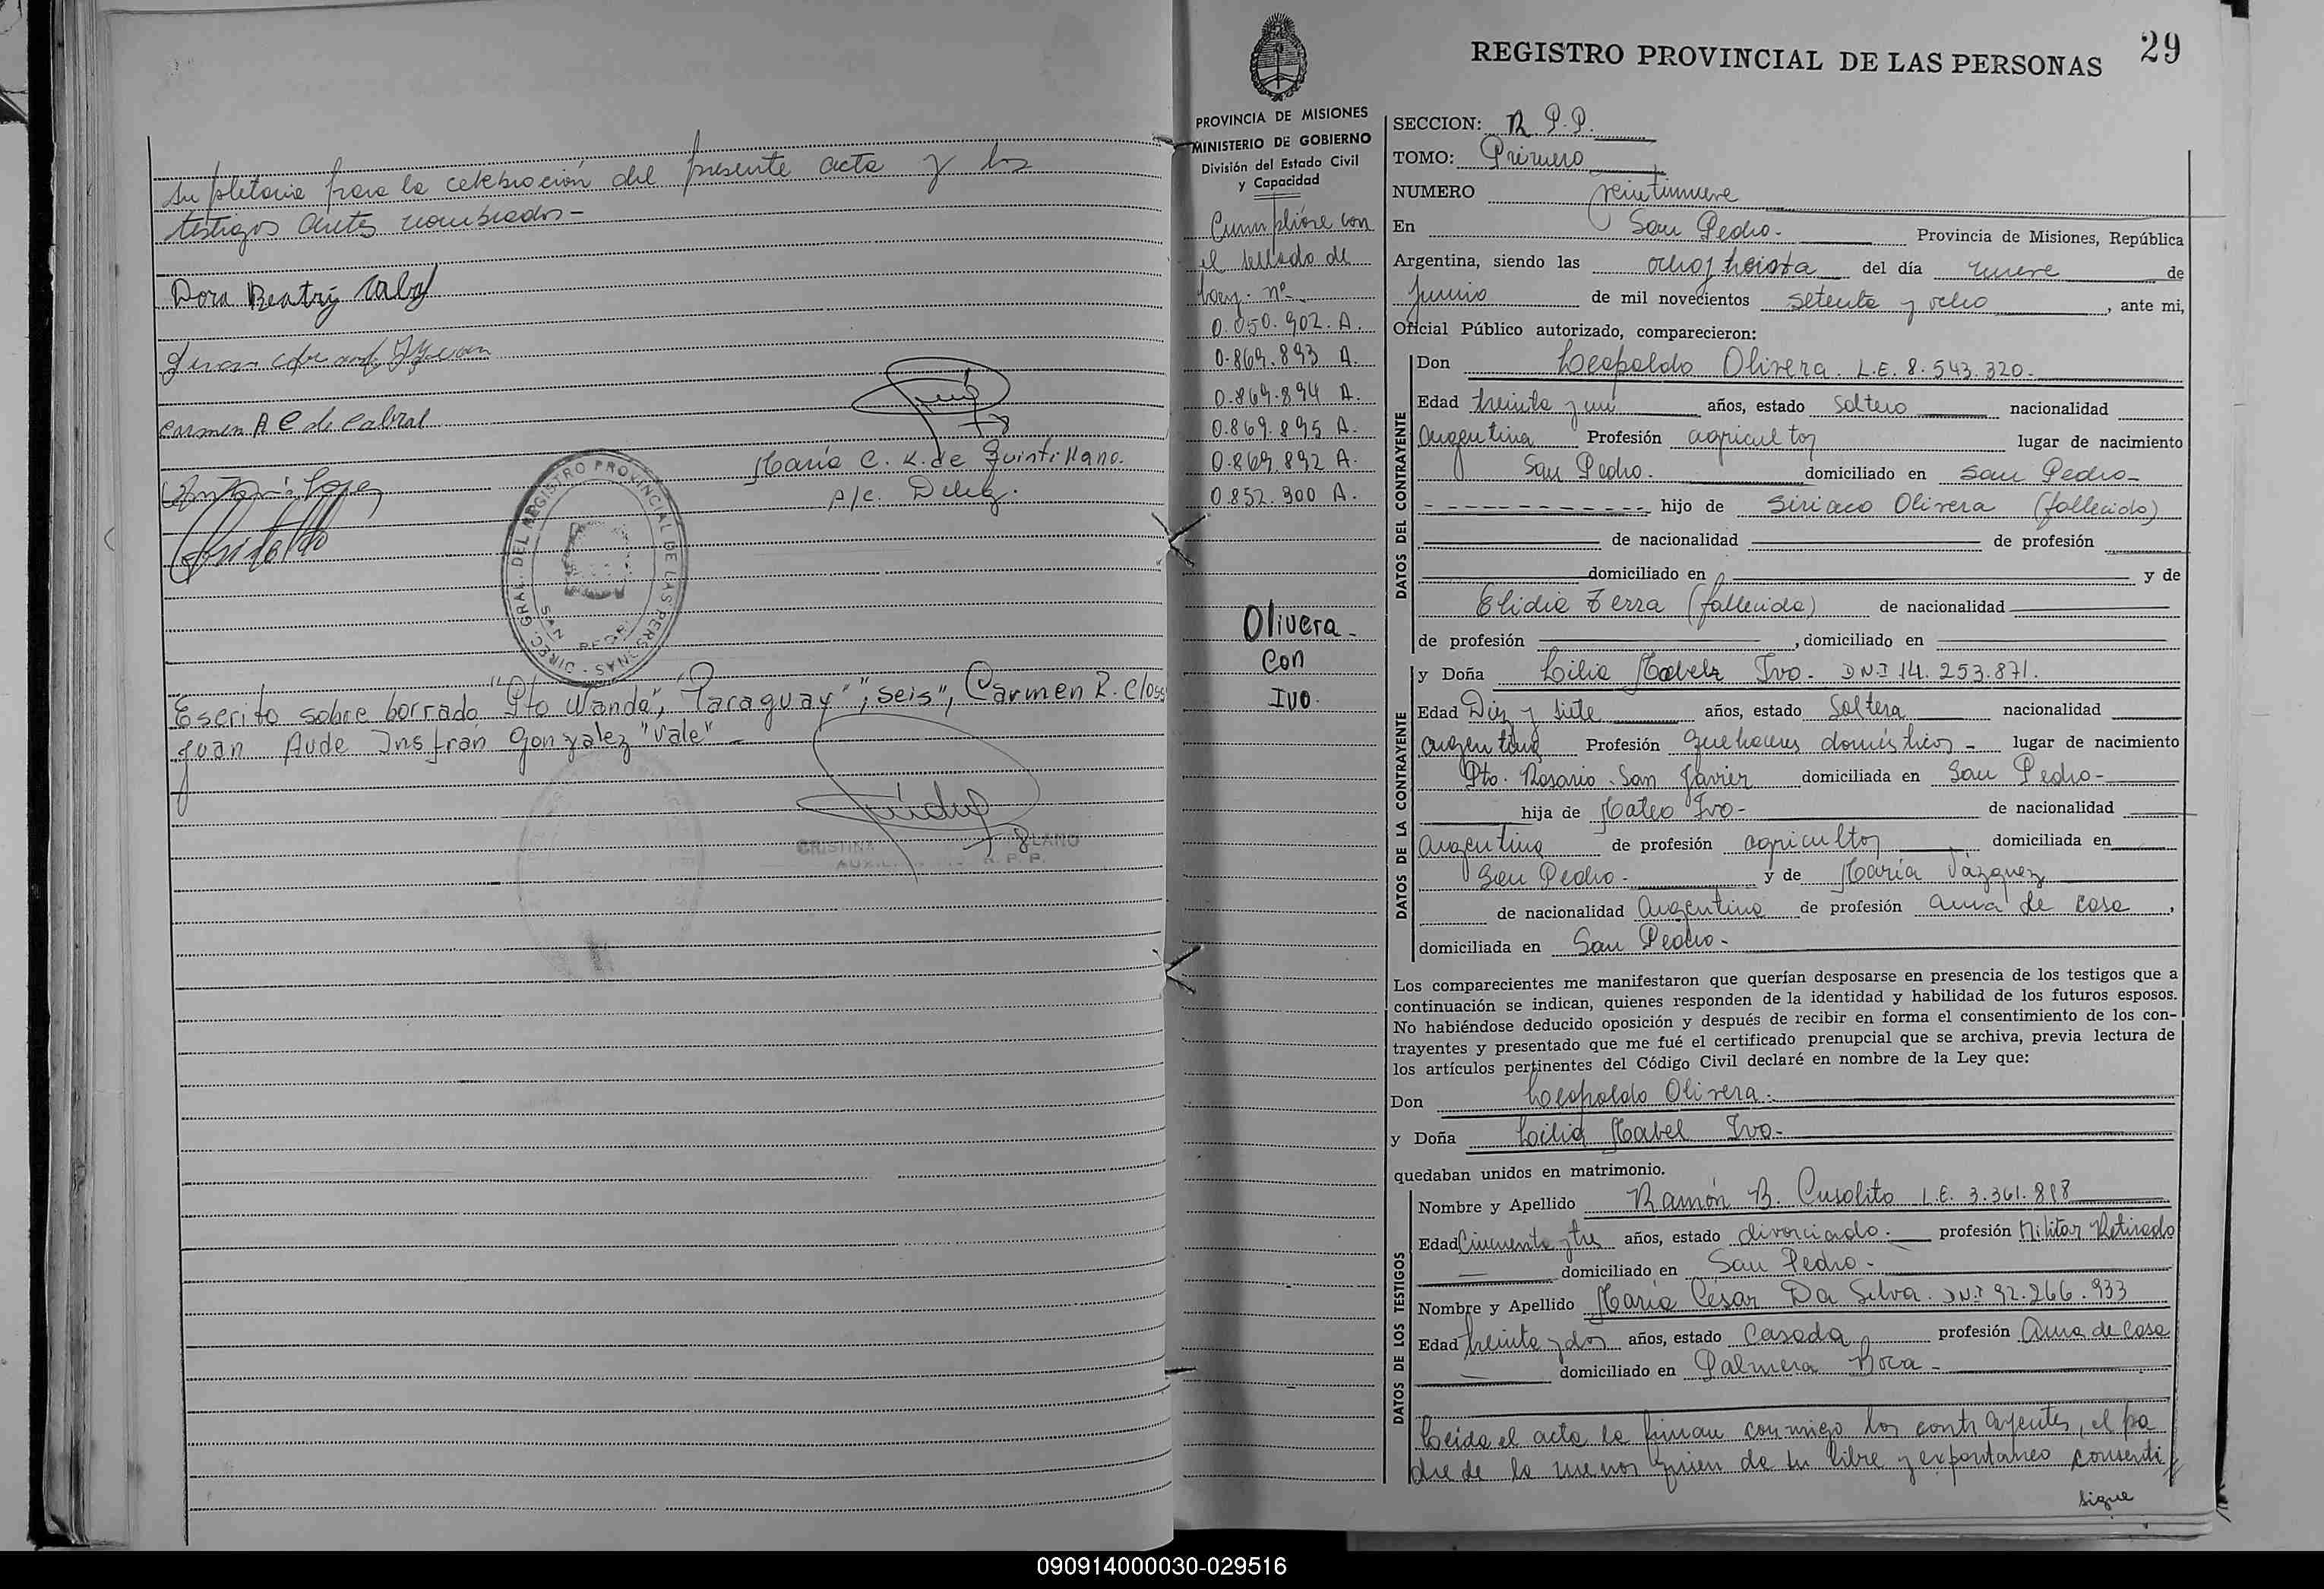 supletoria para la celebración del presente acta y los
testigos antes nombrados-
Dora Beatriz
Carmen A C de Cabral
Antonio Lopez
María C. K. de Quintillano.
a/c. Deleg.
DIREC. GRAL. DEL REGISTRO PROVINCIAL DE LAS PERSONAS -
SAN PEDRO
Escrito sobre borrado "Pto Wanda", "Paraguay"; "seis", Carmen R. Closs
Juan Aude Insfran Gonzalez "Vale" -
CRISTINA
R. P. P.
PROVINCIA DE MISIONES
MINISTERIO DE GOBIERNO
División del Estado Civil
y Capacidad
Cumplióse con
el sellado de
Ley. nº
0.050.902. A.
0.869.893 A.
0.869.894 A.
0.869.895 A.
0.869.892 A.
0.852.900 A.
Olivera-
Con
IVO.
REGISTRO PROVINCIAL DE LAS PERSONAS 29
SECCION: R. P. P.
TOMO: Primero
NUMERO veintinueve
En San Pedro- Provincia de Misiones, República
Argentina, siendo las ocho y treinta del día nueve de
Junio de mil novecientos setenta y ocho, ante mi,
Oficial Público autorizado, comparecieron:
DATOS DEL CONTRAYENTE
Don Leopoldo Olivera. L.E. 8.543.320-
Edad treinta y un años, estado soltero nacionalidad
argentina Profesión agricultor lugar de nacimiento
San Pedro- domiciliado en San Pedro-
hijo de Siriaco Olivera (fallecido)
de nacionalidad de profesión
domiciliado en y de
Elidia Terra (fallecida) de nacionalidad
de profesión , domiciliado en
DATOS DE LA CONTRAYENTE
y Doña Lilia Mabel Ivo. DNI 14.253.871.
Edad Diez y siete años, estado Soltera nacionalidad
argentina Profesión quehaceres domésticos- lugar de nacimiento
Pto. Rosario. San Javier domiciliada en San Pedro-
hija de Mateo Ivo- de nacionalidad
argentina de profesión agricultor domiciliada en
San Pedro- y de María Vázquez
de nacionalidad argentina de profesión ama de casa,
domiciliada en San Pedro-
Los comparecientes me manifestaron que querían desposarse en presencia de los testigos que a
continuación se indican, quienes responden de la identidad y habilidad de los futuros esposos.
No habiéndose deducido oposición y después de recibir en forma el consentimiento de los con-
trayentes y presentado que me fué el certificado prenupcial que se archiva, previa lectura de
los artículos pertinentes del Código Civil declaré en nombre de la Ley que:
Don Leopoldo Olivera.
y Doña Lilia Mabel Ivo-
quedaban unidos en matrimonio.
DATOS DE LOS TESTIGOS
Nombre y Apellido Ramón B. Cusolito L.E. 3.361.818
Edad Cincuenta y tres años, estado divorciado. profesión Militar Retirado
domiciliado en San Pedro-
Nombre y Apellido María César Da Silva. DNI 92.266.933
Edad treinta y dos años, estado Casada profesión Ama de Casa
domiciliado en Palmera Boca-
Leída el acta la firman conmigo los contrayentes, el pa
dre de la menor quien da su libre y expontaneo consenti
sigue
090914000030-029516